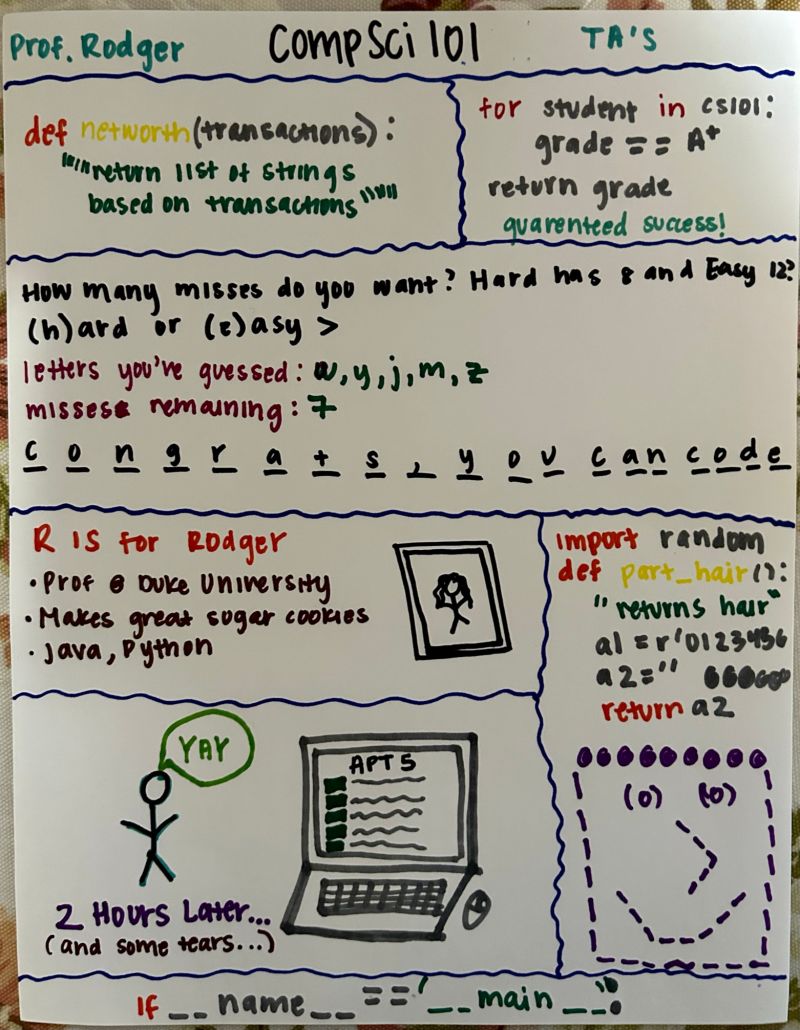 Prof. Rodger
CompSci 101
TA'S
def networth(transactions):
"""return list of strings
based on transactions"""
for student in CS101:
grade == A+
return grade
quarenteed success!
How many misses do you want? Hard has 8 and Easy 12?
(h)ard or (e)asy >
letters you've guessed: w, y, j, m, z
misses remaining: 7
c o n g r a t s , y o u c an c o d e
R IS for Rodger
• Prof @ Duke University
• Makes great sugar cookies
• Java, Python
import random
def part_hair():
"returns hair"
a1 = r'0123456
a2 = "
return a2
(0) (0)
YAY
APT 5
2 Hours Later...
(and some tears...)
If __name__ == '__main__':